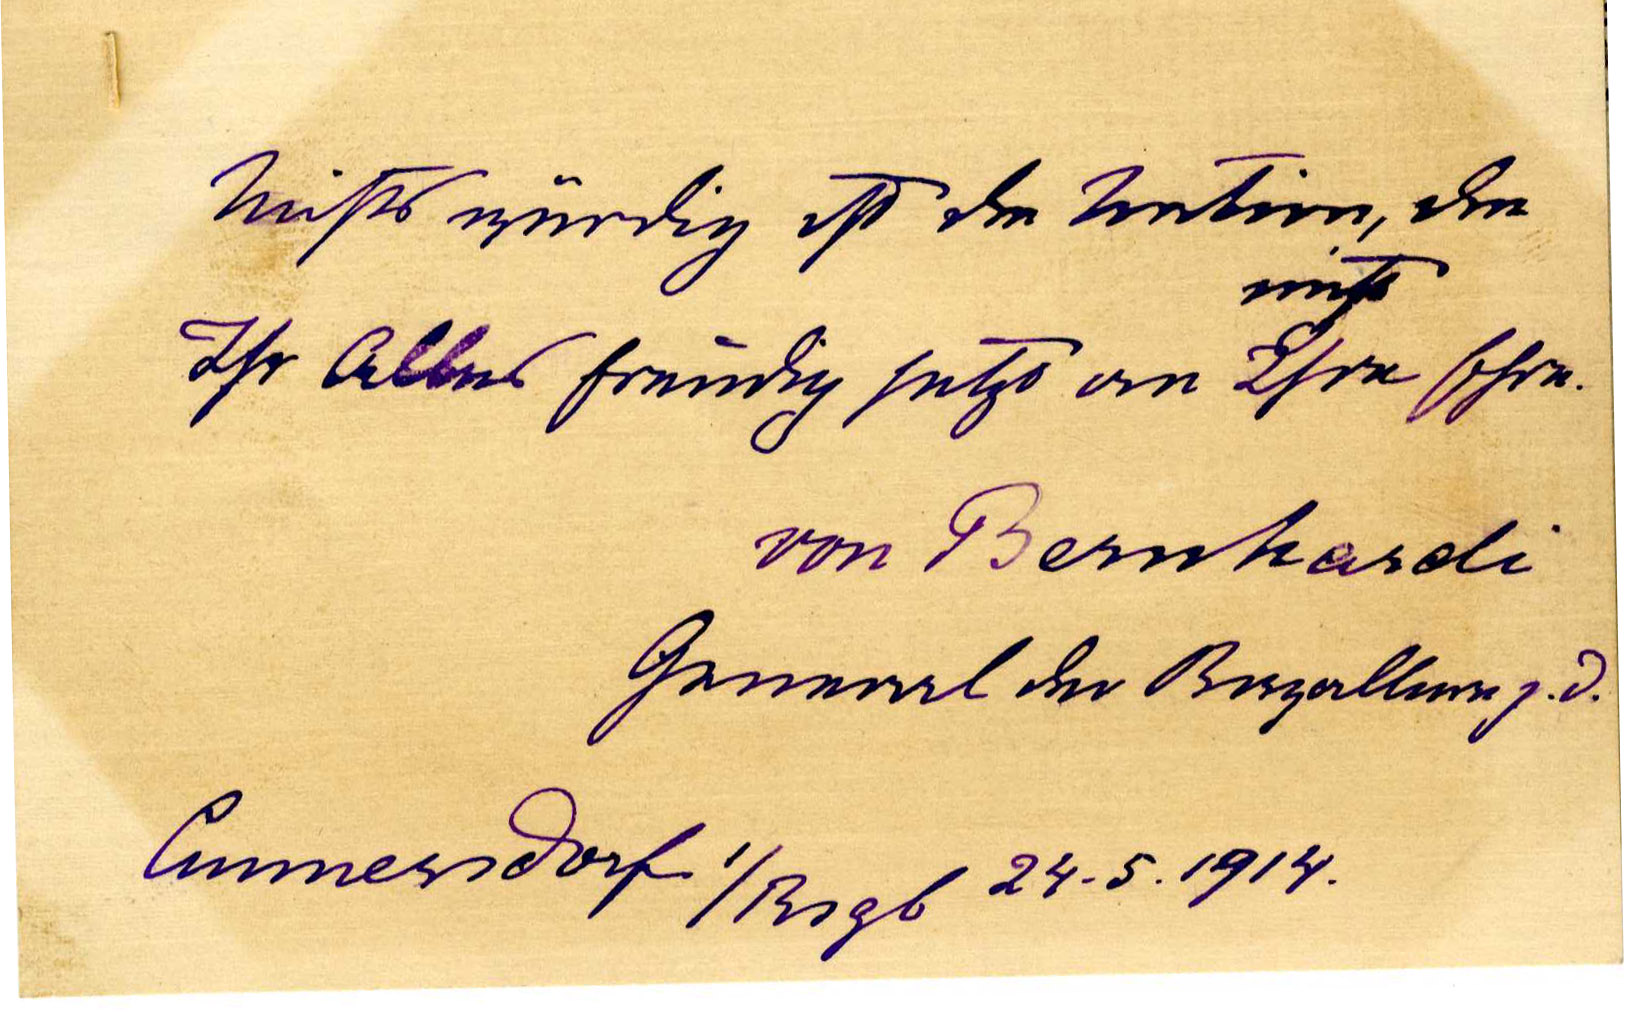 Nichts würdig ist die Nation, die
nicht
Ihr Alles freudig setzt an Ihre Ehre.
von Bernhardi
General der Kavallerie z.D.
Cunnersdorf i/Rsgb 24.5.1914.